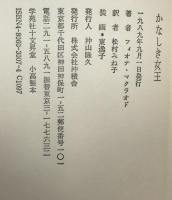 かなしき女王
一九八九年九月一日発行
著者 フィオナ・マクラオド
訳者 松村みね子
装画★東逸子
発行人 沖山隆久
発行所 株式会社沖積舎
東京都千代田区神田神保町一-五二郵便番号一〇一
電話二九一-五八九一振替東京三-一七七六三二
学苑社十文昇堂 小高製本
ISBN4-8060-3007-4 C1097